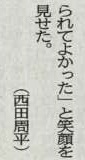 られてよかった」と笑顔を
見せた。
（西田周平）